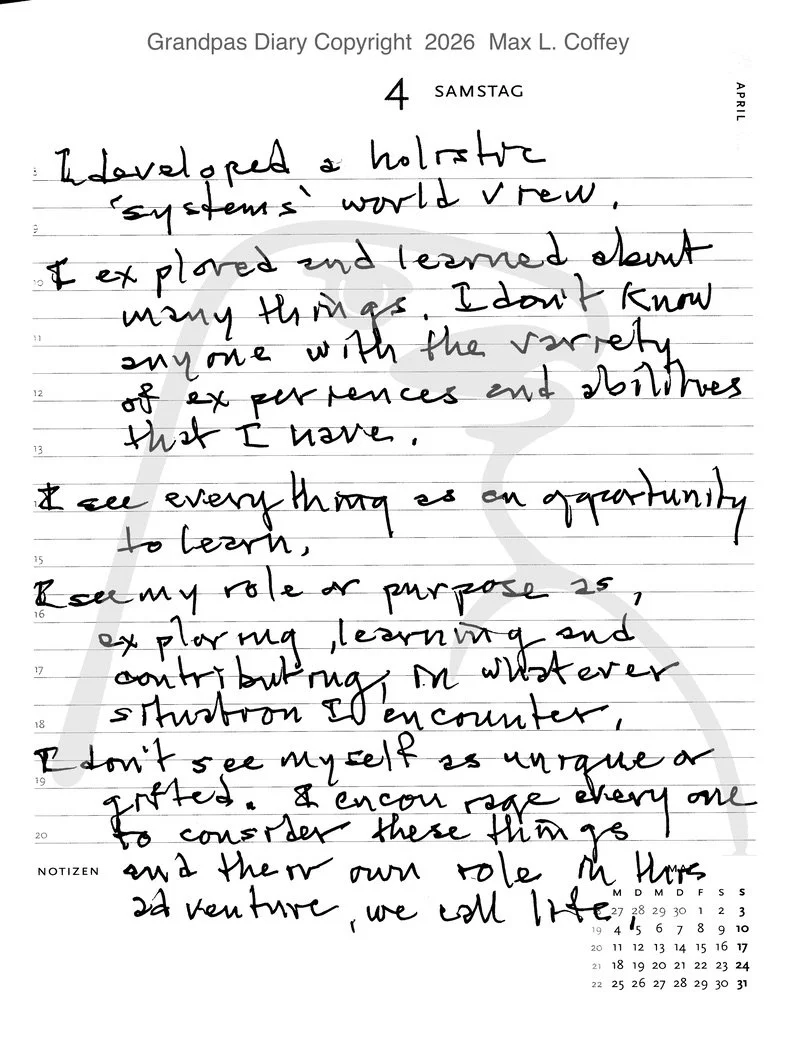 Grandpas Diary Copyright 2026 Max L. Coffey
4 SAMSTAG
APRIL
8
I developed a holistic
'systems' world view.
9
I explored and learned about
10
many things. I don't know
11
anyone with the variety
12
of experiences and abilities
that I have.
13
I see everything as an opportunity
to learn,
15
I see my role or purpose as,
16
exploring, learning and
17
contributing, in whatever
situation I encounter,
18
I don't see myself as unique or
19
gifted. I encourage every one
20
to consider these things
NOTIZEN and their own role in this
adventure, we call life,
M D M D F S S
27 28 29 30 1 2 3
19 4 5 6 7 8 9 10
20 11 12 13 14 15 16 17
21 18 19 20 21 22 23 24
22 25 26 27 28 29 30 31